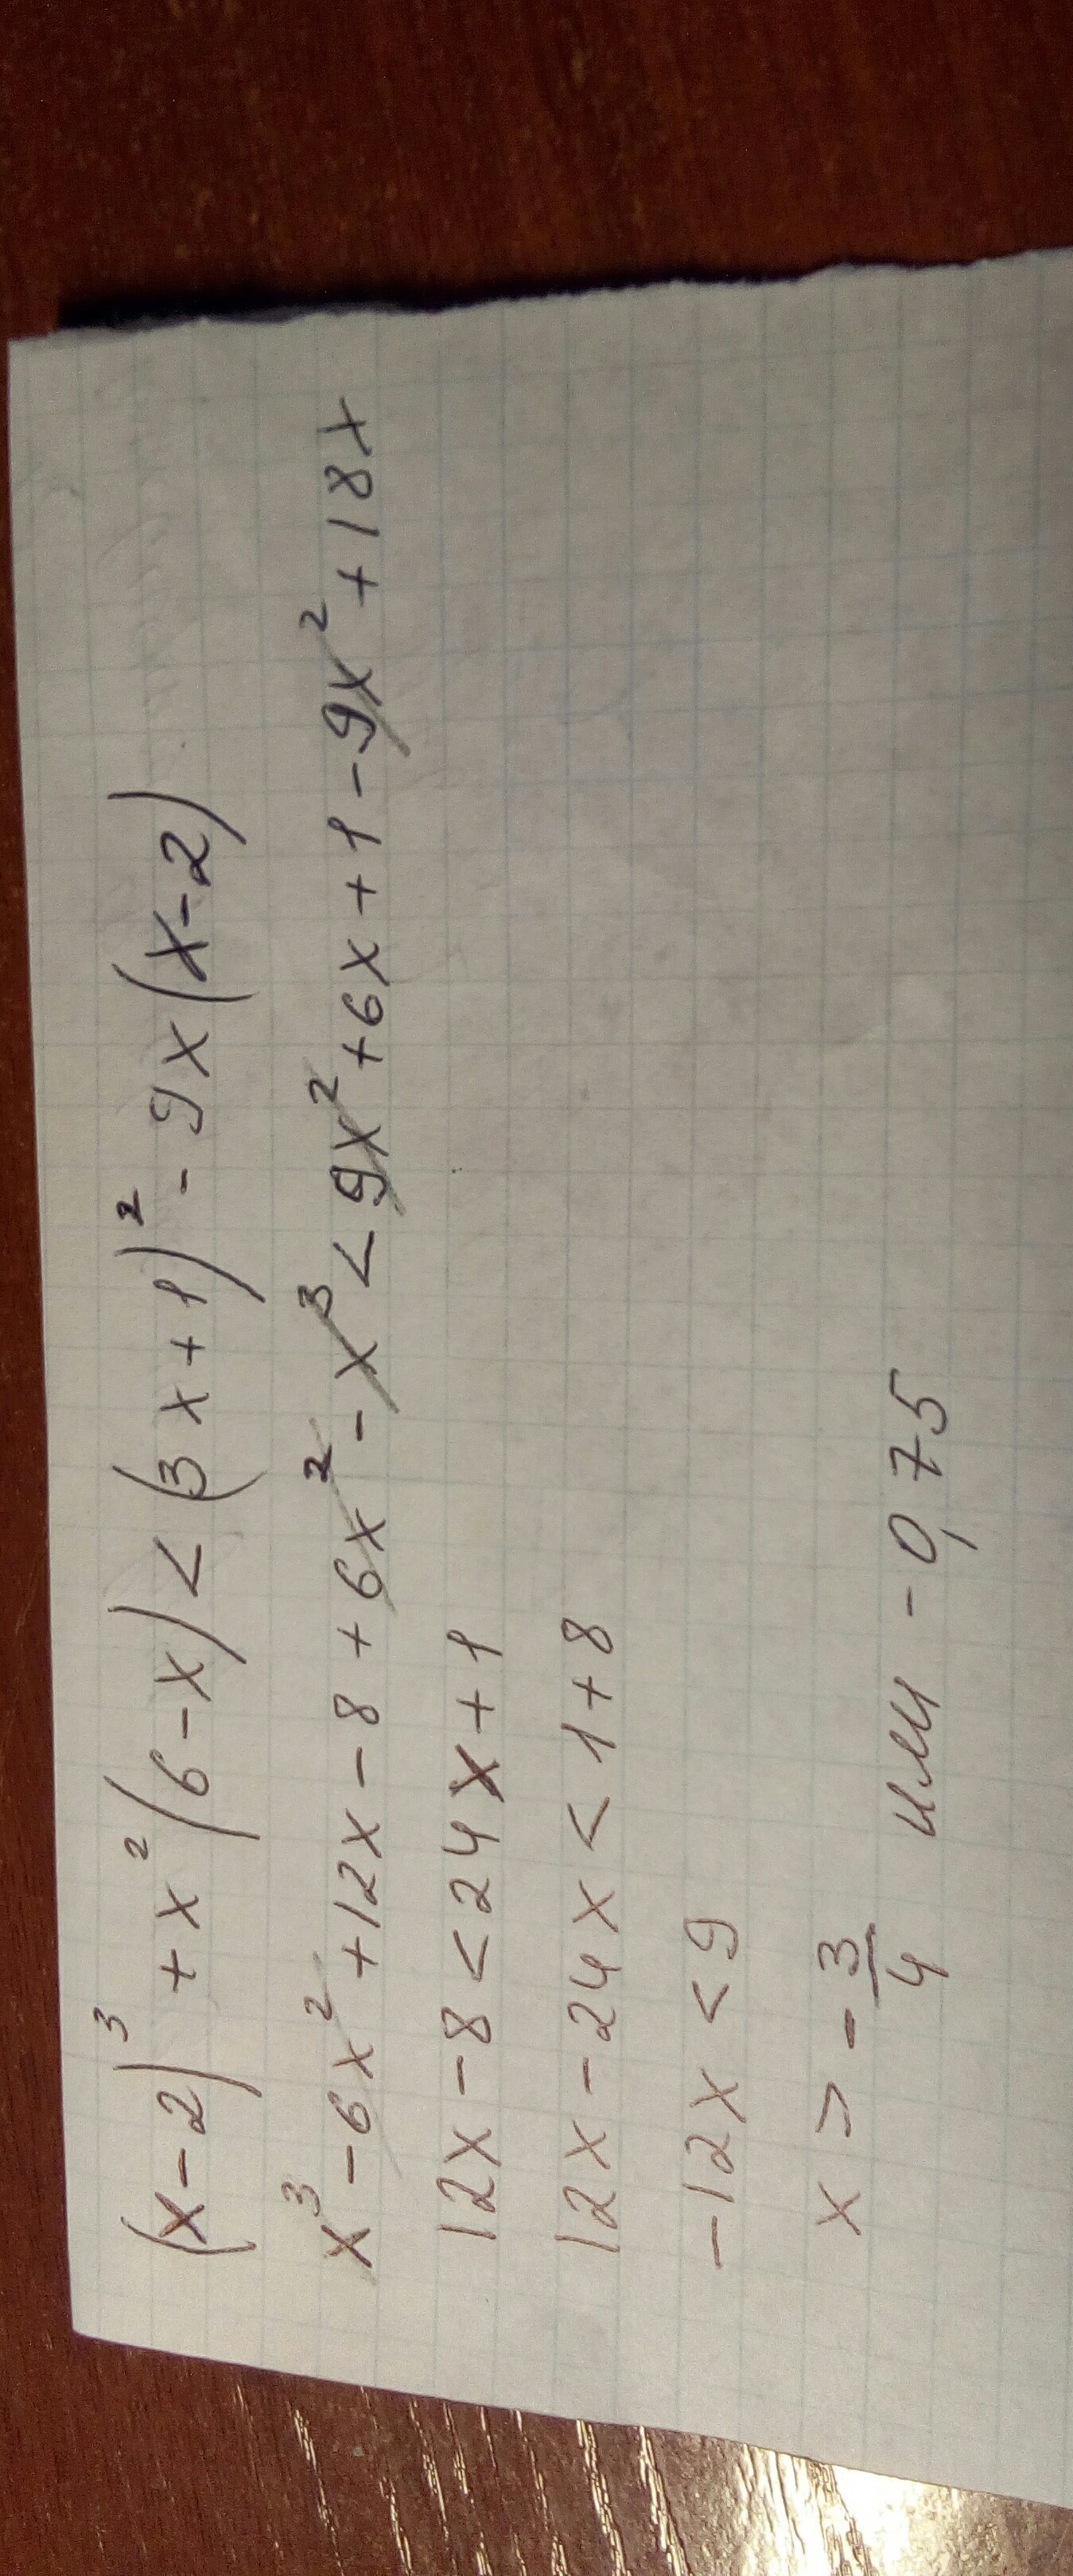 (x-2)³ + x²(6-x) < (3x+1)² - 9x(x-2)
x³ - 6x² + 12x - 8 + 6x² - x³ < 9x² + 6x + 1 - 9x² + 18x
12x - 8 < 24x + 1
12x - 24x < 1 + 8
-12x < 9
x > - 3/4 или - 0,75